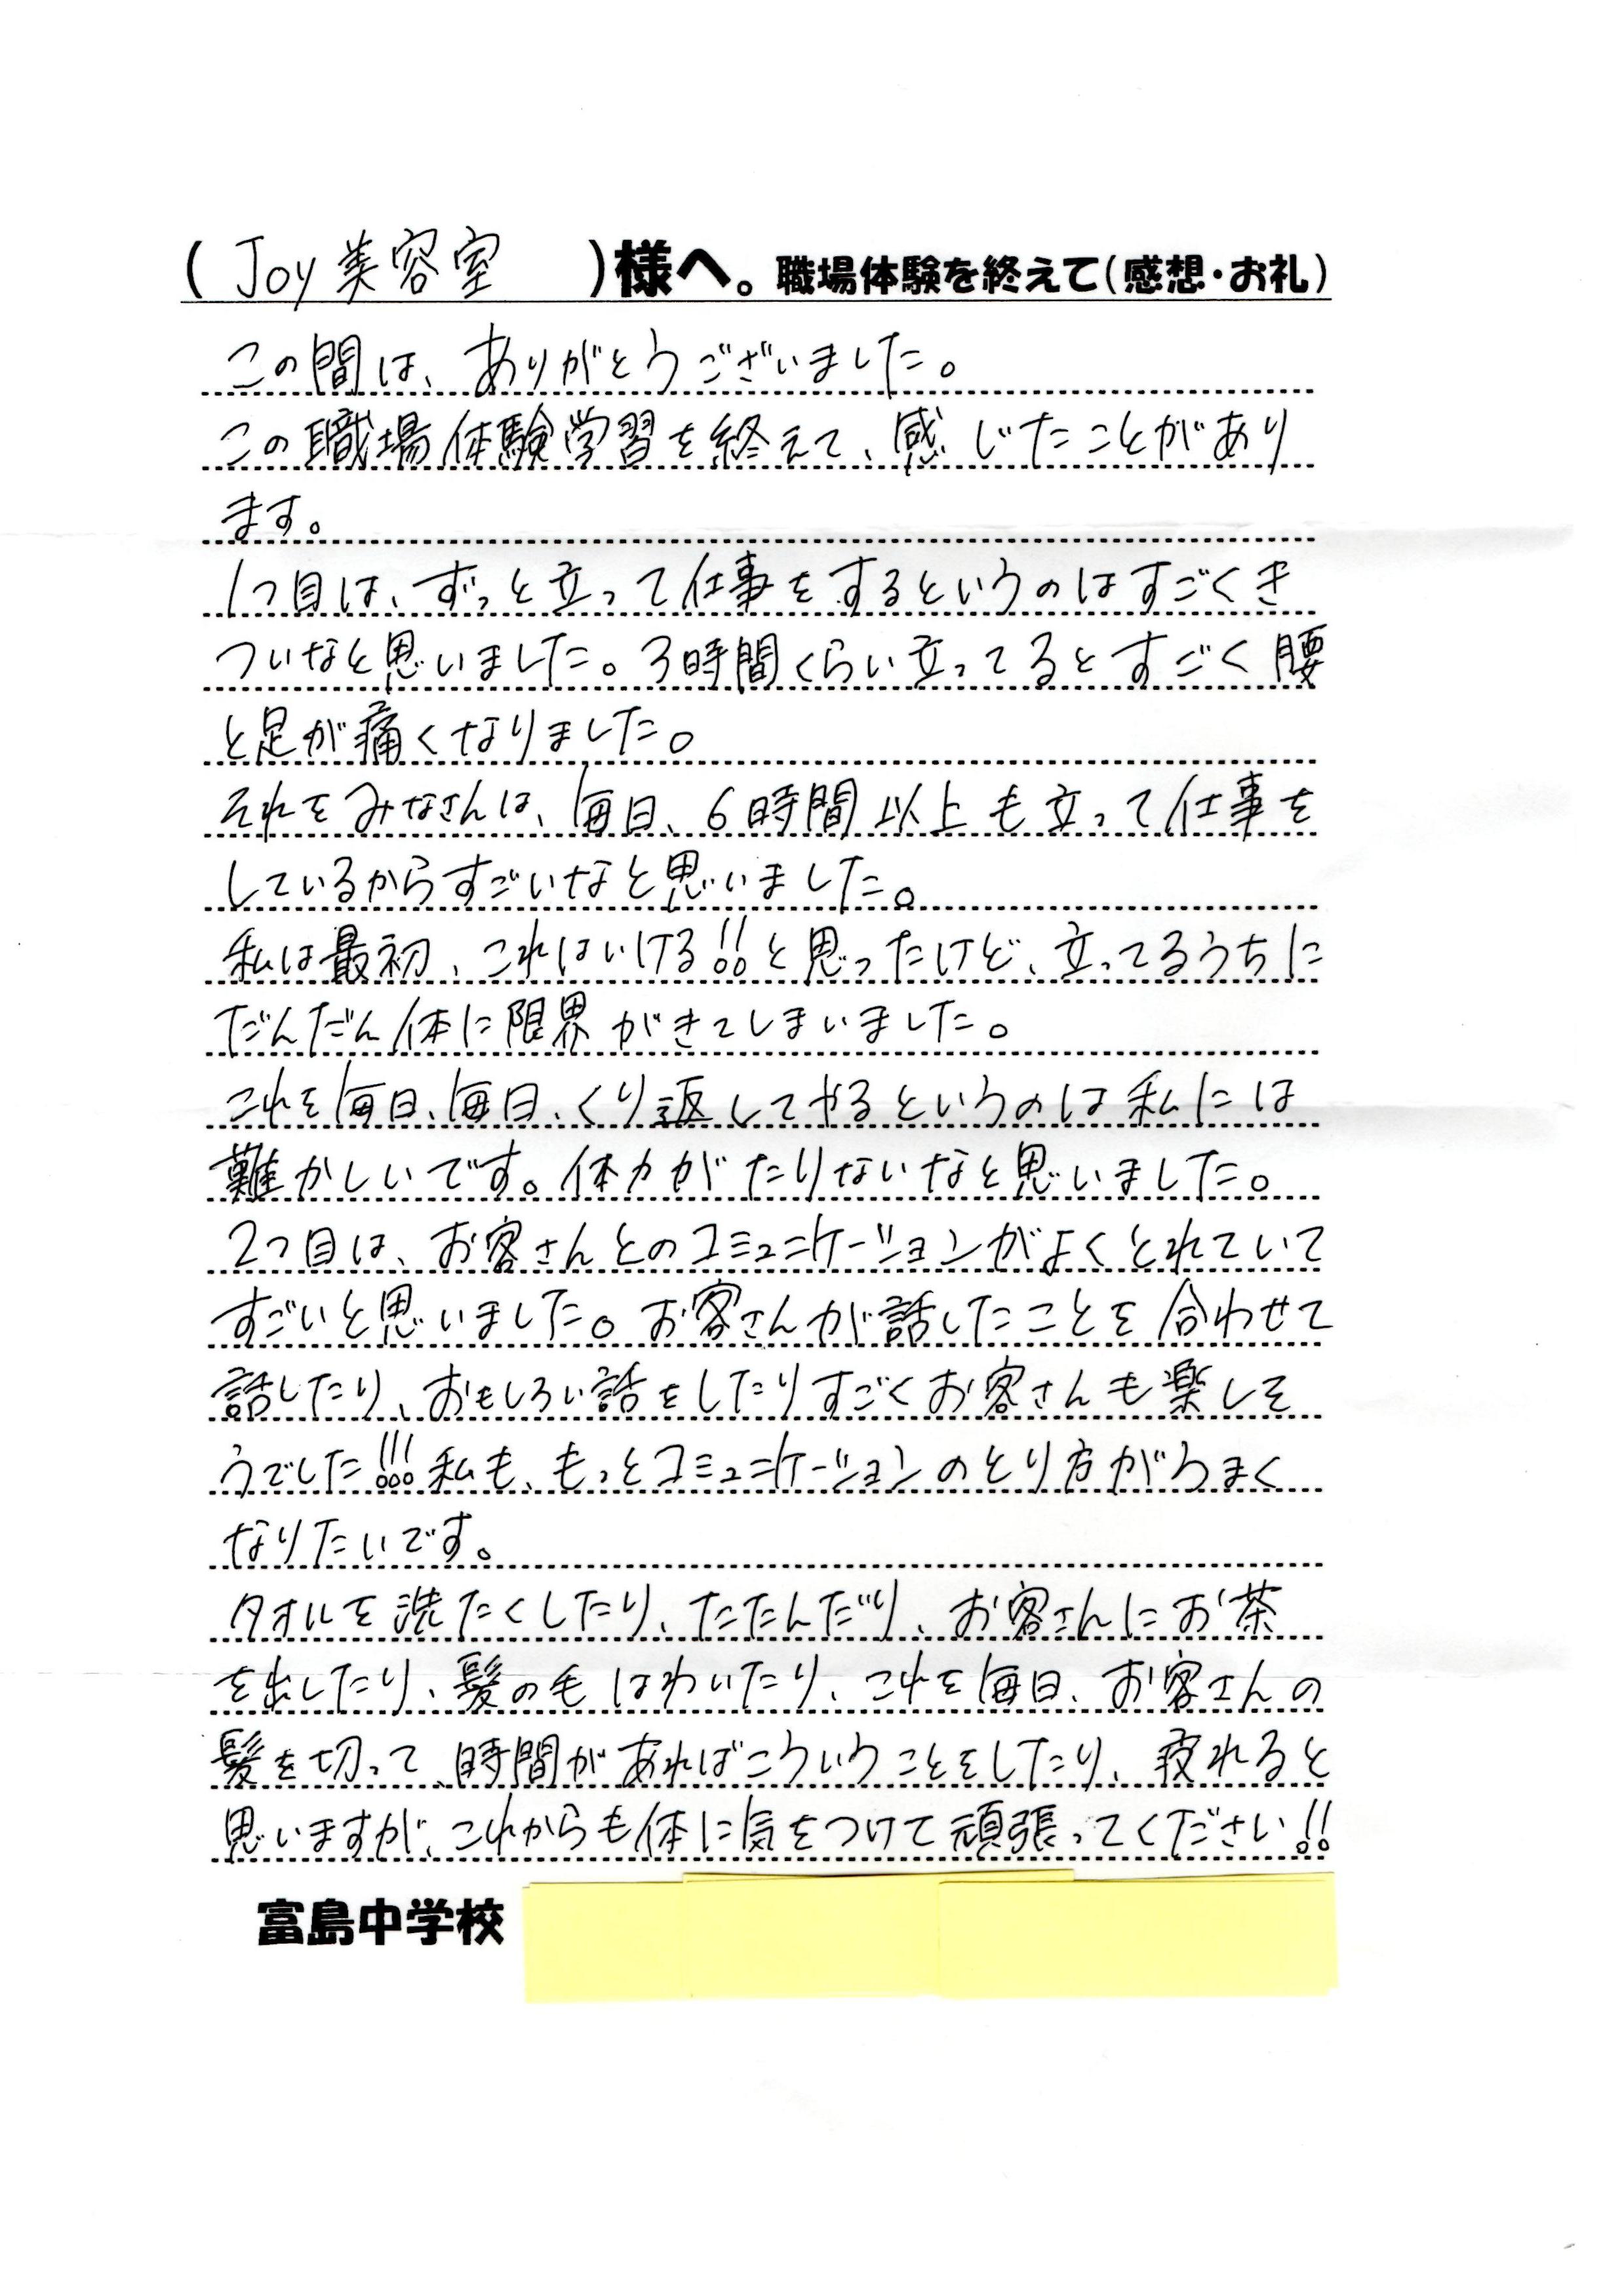 (Joy美容室)様へ。職場体験を終えて(感想・お礼)
この間は、ありがとうございました。
この職場体験学習を終えて、感じたことがあり
ます。
1つ目は、ずっと立って仕事をするというのはすごくき
ついなと思いました。3時間くらい立ってるとすごく腰
と足が痛くなりました。
それをみなさんは、毎日、6時間以上も立って仕事を
しているからすごいなと思いました。
私は最初、これはいける!!と思ったけど、立ってるうちに
だんだん体に限界がきてしまいました。
これを毎日、毎日、くり返してやるというのは私には
難かしいです。体力がたりないなと思いました。
2つ目は、お客さんとのコミュニケーションがよくとれていて
すごいと思いました。お客さんが話したことを合わせて
話したり、おもしろい話をしたりすごくお客さんも楽しそ
うでした!!!私も、もっとコミュニケーションのとり方がうまく
なりたいです。
タオルを洗たくしたり、たたんだり、お客さんにお茶
を出したり、髪の毛はわいたり、これを毎日、お客さんの
髪を切って、時間があればこういうことをしたり、疲れると
思いますが、これからも体に気をつけて頑張ってください!!
富島中学校